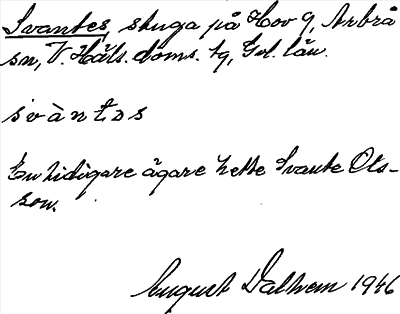 Svantes stuga på Hov 9, Arbrå
sn, V. Häls. doms. tg, Gvl. län.
svàntəs
En tidigare ägare hette Svante Ols-
son.
August Dalhem 1946